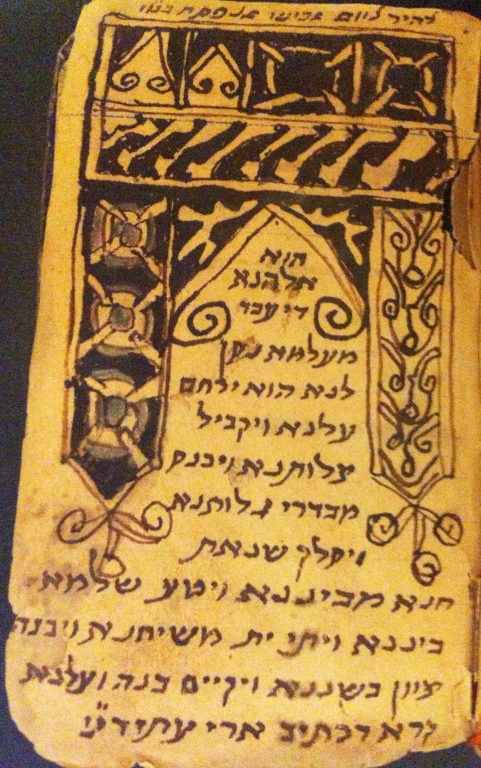 ליום אלפסח
הוא
אלהנא
די עבד
מעלמא נסן
לנא הוא ירחם
עלנא ויקביל
צלותנא ויכנס
מבדרי גלותנא
ויסלק שנאת
חנא מביננא ויטע שלמא
ביננא ויתי ית משיחנא ויבנה
ציון בשננא ויקיים בנה ועלנא
קרא דכתיב ארי עתיד